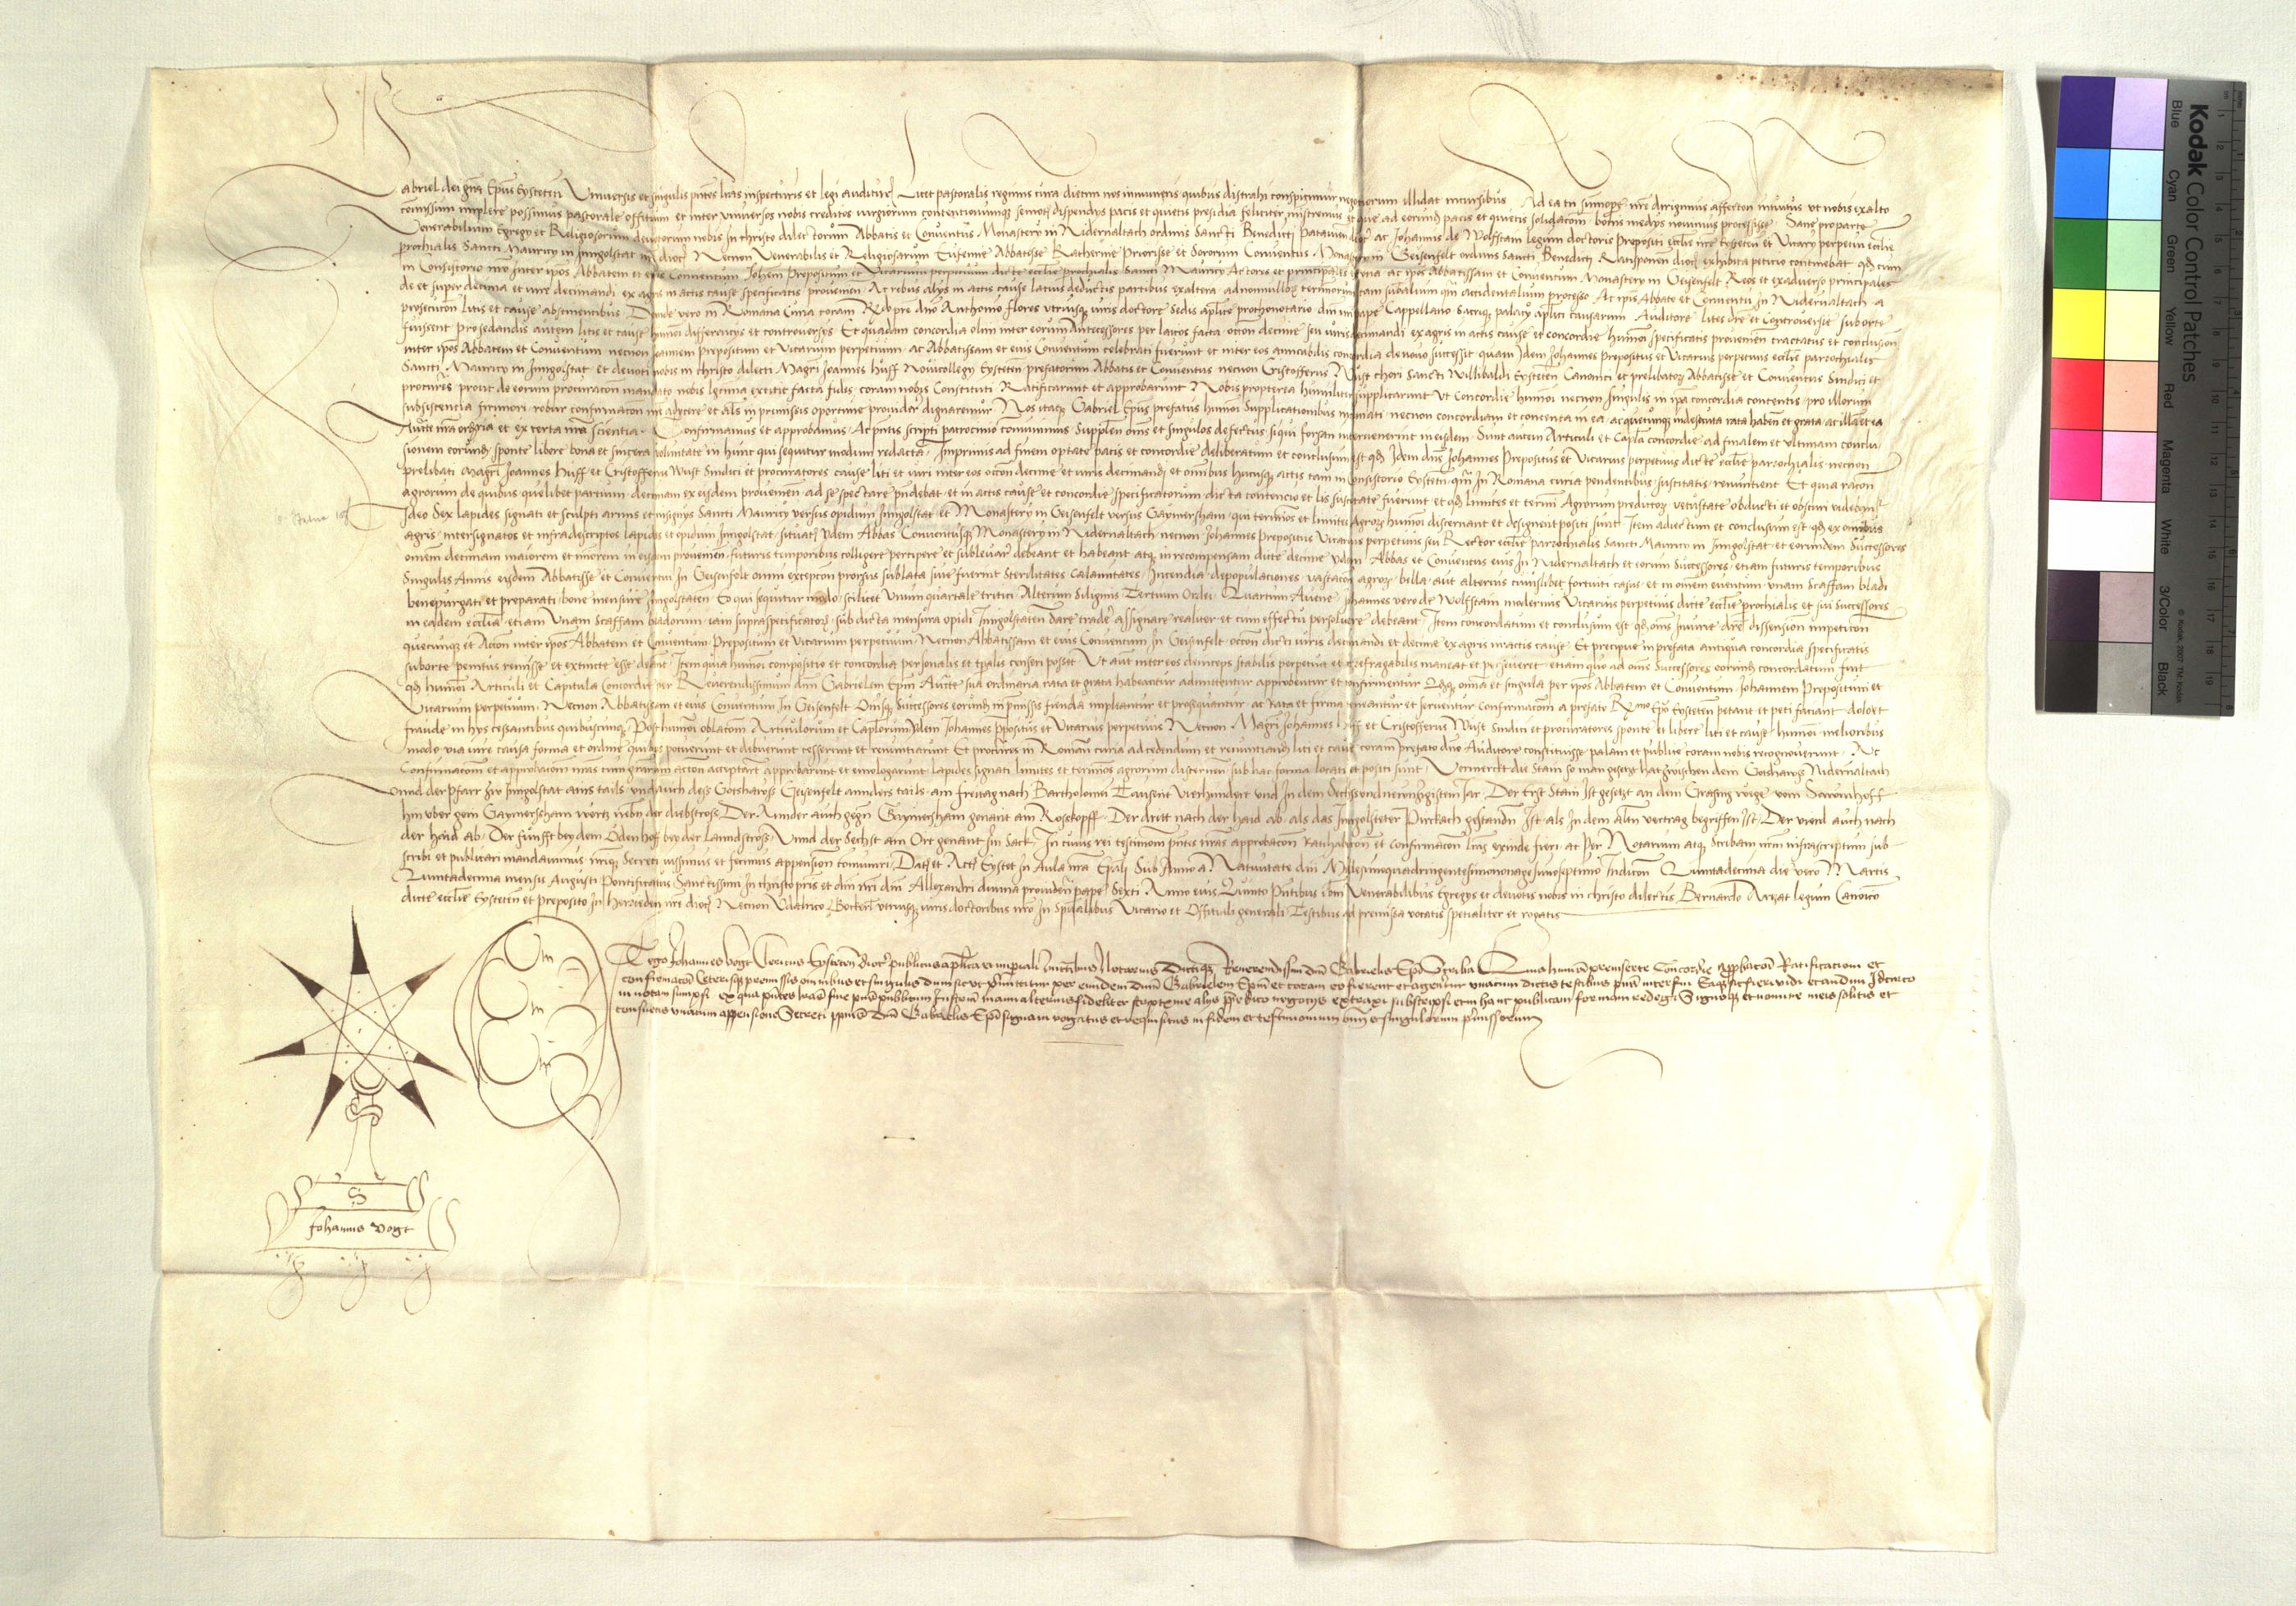 abriel dei gra Epus Eysteten Universis et singulis pntes lras inspecturis et legi audituris Licet pastoralis regiminis cura dietim nos innumeris quibus distrahi conspicimur negotiorum illidat incursibus Ad ea tn summope nre dirigimus affection intuitus ut nobis ex alto
comissum implere possimus pastorale officium et inter universos nobis creditos iurgiorum contentionumq semotis dispendys pacis et quietis presidia feliciter ministremus et que ad eorund pacis et quietis solidatom bonis medys novimus processisse Sane pro parte
Venerabilium Egregy et Religiosorum devotorum nobis in christo dilectorum Abbatis et Conventus Monastery in Nidernaltach ordinis Sancti Benedicti patavien dioc ac Johannis de Wolfstain legum doctoris prepositi ecclie nre Eysteten et Vicary perpetui ecclie
prochialis Sancti Mauricy in Inngolstat nre dioc Necnon Venerabilis et Religiosarum Eufemie Abbatisse Katherine Priorisse et Sororum Conventus Monastery in Geisenfelt ordinis Sancti Benedicti Ratisponen dioc exhibita peticio continebat qd cum
in Consistorio nro inter ipos Abbatem et eius Conventum Johem Prepositum et Vicarium perpetuum dicte ecclie prochialis Sancti Mauricy Actores et principales ex una ac ipas abbatissam et Conventum Monastery in Geisenfelt Reos et ex adverso principales
de et super decima et iure decimandi ex agris in actis cause specificatis provenien Ac rebus alys in actis cause latius deductis partibus ex altera ad nonnullos terminorum tam substancialium qm accidentalium processo Ac ipis Abbate et Conventu in Nidernaltach a
prosecucion litis et cause abstinentibus Deinde vero in Romana Curia coram Rdo pre dno Anthonio flores utriusq iuris doctore Sedis aplice prothonotario dni nri pape Cappellano Sacriq palacy aplici causarum Auditore lites dre et Controversie suborte
fuissent Pro sedandis autem litis et cause humoi differencys et controversys Et quadam concordia olim inter eorum Antecessores per laicos facta occon decime seu iuris decimandi ex agris in actis cause et concordie humoi specificatis provenien tractatus et conclusion
inter ipos Abbatem et Conventum necnon Joannem prepositum et Vicarium perpetuum ac Abbatissam et eius Conventum celebrati fuerunt et inter eos amicabilis concordia de novo successit quam Idem Johannes prepositus et Vicarius perpetuus ecclie parrochialis
Sancti Mauricy in Inngolstat et devoti nobis in christo dilecti Magri Joannes Huff Novicollegy Eysteten prefatorum Abbatis et Conventus necnon Cristofferus Wust chori Sancti Willibaldi Eysteten Canonici et prelibatorum Abbatisse et Conventus Sindici et
procures prout de eorum procuracon mandato nobis legitima exeitit facta fides coram nobis Constituti Ratificarunt et approbarunt Nobis propterea humiliter supplicarunt Ut Concordie humoi necnon singulis in ipa concordia contentis pro illorum
subsistencia firmiori robur confirmacon nre adycere et als in premissis oportune provider dignaremur Nos itaq Gabriel Epus prefatus humoi supplicationibus inclinati necnon concordiam et contenta in ea ac quecunq inde secuta rata haben et grata ac illa et ea
Aucte nra ordria et ex certa nra scientia Confirmamus et approbamus Ac pntis scripti patrocinio communimus Supplen oms et singulos defectus siqui forsan intervenerint in eisdem Sunt autem Articuli et Capla concordie ad finalem et ultimam conclu
sionem eorund sponte libere bona et sincera voluntate in hunc qui sequitur modum redacta Imprimis ad finem optate pacis et concordie deliberatum et conclusum est qd Idem dns Johannes Prepositus et Vicarius perpetuus dicte ecclie parrochialis necnon
prelibati Magri Joannes Huff et Cristofferus Wust Sindici et procuratores cause liti et iuri inter eos occon decime et iuris decimandi et omnibus hucusq actis tam in Consistorio Eysteten qm in Romana curia pendentibus suscitatis renuncient Et quia racon
agrorum de quibus quelibet partium decimam ex eisdem provenien ad se spectare pndebat et in actis cause et concordie specificatorum dicta contencio et lis suscitate fuerunt et qd limites et termi Agrorum predictorum vetustate obducti et obscuri videbant
Ideo Sex lapides signati et sculpti armis et insignys Sancti Mauricy versus opidum Inngolstat et Monastery in Geisenfelt versus Gaymersham qui terminos et limites agrorum humoi discernant et designent positi sunt Item adiectum et conclusum est qd ex omnibus
agris intersignatos et infradescriptos lapides et opidum Inngolstat situatis Iidem Abbas Conventusq Monastery in Nidernaltach necnon Johannes Prepositus Vicarius perpetuus seu Rector ecclie parrochialis Sancti Mauricy in Inngolstat et eorundem Successores
omnem decimam maiorem et minorem in eisdem provenien futuris temporibus colligere percipere et sublevare debeant et habeant atq in recompensam dicte decime Iidem Abbas et Conventus eius in Nidernaltach et eorum Successores etiam futuris temporibus
Singulis Annis eisdem Abbatisse et Conventui in Geisenfelt omni excepcon prorsus sublata sive fuerint Sterilitates Calamitates Incendia depopulationes vastacon agrorum bella aut alterius cuiuslibet fortuiti casus et in omnem eventum unam Scaffam bladi
bene purgati et preparati bone mensure Inngolstaten Eo qui sequitur modo scilicet Unum quartale tritici Alterum Siliginis Tertium Ordei Quartum Avene Johannes vero de Wolfstain modernus Vicarius perpetuus dicte ecclie prochialis et sui Successores
in eadem ecclia etiam Unam Scaffam bladorum iam supraspecificatorum sub dicta mensura opidi Inngolstaten dare tradere assignare realiter et cum effectu persolvere debeant Item concordatum et conclusum est qd oms Iniurie dre dissension impeticon
quecunq et Action inter ipos Abbatem et Conventum Prepositum et Vicarium perpetuum Necnon Abbatissam et eius Conventum in Geisenfelt occon dicti iuris decimandi et decime ex agris in actis cause Et precipue in prefata antiqua concordia specificatis
suborte penitus remisse et extincte esse debeant Item quia humoi compositio et concordia personalis et rpalis censeri posset Ut aut inter eos deinceps stabilis perpetua et irrefragabilis maneat et perseveret etiam quo ad oms Successores eorund concordatum fuit
qd humoi Articuli et Capitula Concordie per Reverendissimum dnm Gabrielem Epm Aucte sua ordinaria rata et grata habeantur admittentur approbentur et confirmentur Qdq omnia et singula per ipos Abbatem et Conventum Johannem Prepositum et
Vicarium perpetuum Necnon Abbatissam et eius Conventum in Geisenfelt Omsq Successores eorund in premissis fienda impleantur et prosequantur ac Rata et firma teneantur et serventur Confirmacom a prefato Rmo Epo Eysteten petant et peti faciant dolo et
fraude in hys cessantibus quibuscunq Post humoi oblatom Articulorum et Caplorum Iidem Johannes Ppositus et Vicarius perpetuus Necnon Magri Johannes Huff et Cristofferus Wust Sindici et procuratores sponte et libere liti et cause humoi melioribus
modo via iure causa forma et ordine quibus potuerunt et debuerunt cesserunt et renuntiarunt Et procures in Romana curia ad cedendum et renuntiand liti et cause coram prefato dno Auditore constituisse palam et publice coram nobis recognoverunt Ac
Confirmacom et approbacom nras cum graru action acceptarunt approbarunt et emologarunt Lapides signati limites et terminos agrorum discernen sub hac forma locati et positi sunt Vermerckt die Stain so man gesetzt hat zwischen dem Gotshawss Nidernaltach
unnd der Pfarr zw Inngolstat ains tails und auch dess Gotshawss Geisenfelt annders tails am freitag nach Bartholomei Tausent Vierhundert und In dem Sechsundneuntzigistem Jar Der Erst Stain Ist gesetzt an dem Grasing wege vom Sawrnhoff
hin uber gein Gaymersham wertz neben der diebstross Der Annder auch gegen Gaymersham genant am Roskopff Der dritt nach der haid ab als das Inngolsteter Purkach gestanden Ist als In dem alten vertrag begriffen Ist Der vierd auch nach
der haid ab Der funfft bey dem Odenhof bey der Lanndstross Unnd der Sechst am Ort genant Im Sack In cuius rei testimom pntes lras approbacom ratihabicon et confirmacon huis exinde fieri ac per Notarium atq Scribam nrm infrascriptum sub
scribi et publicari mandavimus nriq Secreti iussimus et fecimus appension comuniri Dat et Act Eystet in Aula nra Epali Sub Anno a Nativitate dni Millesimoquadringentesimononagesimoseptimo Indicon Quintadecima die vero Martis
Quintadecima mensis Augusti Pontificatus Sanctissimi in christo pris et dni nri dni Allexandri divina providen pape Sexti Anno eius Quinto Pntibus ibm Venerabilibus Egregys et devotis nobis in christo dilectis Bernardo Arzat legum Canonico
dicte ecclie Eysteten et preposito in Herrieden nre dioc Necnon Udalrico Bockert utriusq iuris doctoribus nro in Spualibus Vicario et Officiali generali Testibus ad premissa vocatis specialiter et rogatis
Et ego Johannes Vogt Clericus Eysteten dioc publicus aplica et imperiali auctibus Notarius Dictiq Reverendissimi dni Gabrielis Epi Scriba Quia humoi preinserte Concordie Approbacoi Ratificacioni et
confirmacoi Ceterisq premissis omnibus et singulis dum sicut pmittitur per eundem dnm Gabrielem Epm et coram eo fierent et agerentur unacum dictis testibus pns interfui Eaq sic fieri vidi et audivi Idcirco
in notam sumpsi ex qua pntes lras sive pns publicum Instrum manu alterius fideliter scriptum me alys prepedito negotys extraxi subscripsi et in hanc publicam formam redegi Signoq et nomine meis solitis et
consuetis unacum appensione Secreti ppti dni Gabrielis Epi signavi rogatus et requisitus in fidem et testimonium omi et singulorum pmissorum
S
Johannes Vogt